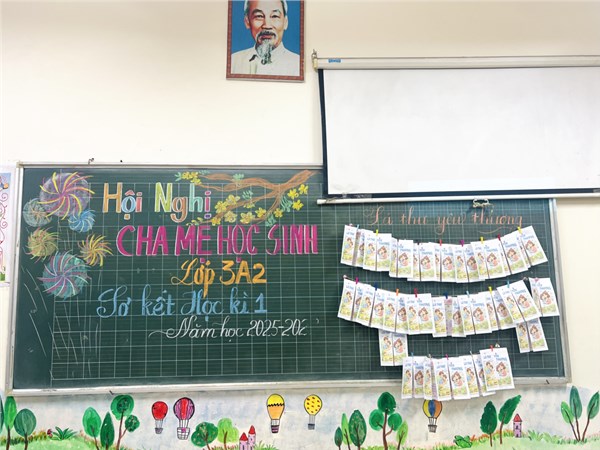 Hội Nghị
CHA MẸ HỌC SINH
Lớp 3A2
Sơ kết Học kì 1
Năm học 2025-202
Lá thư yêu thương